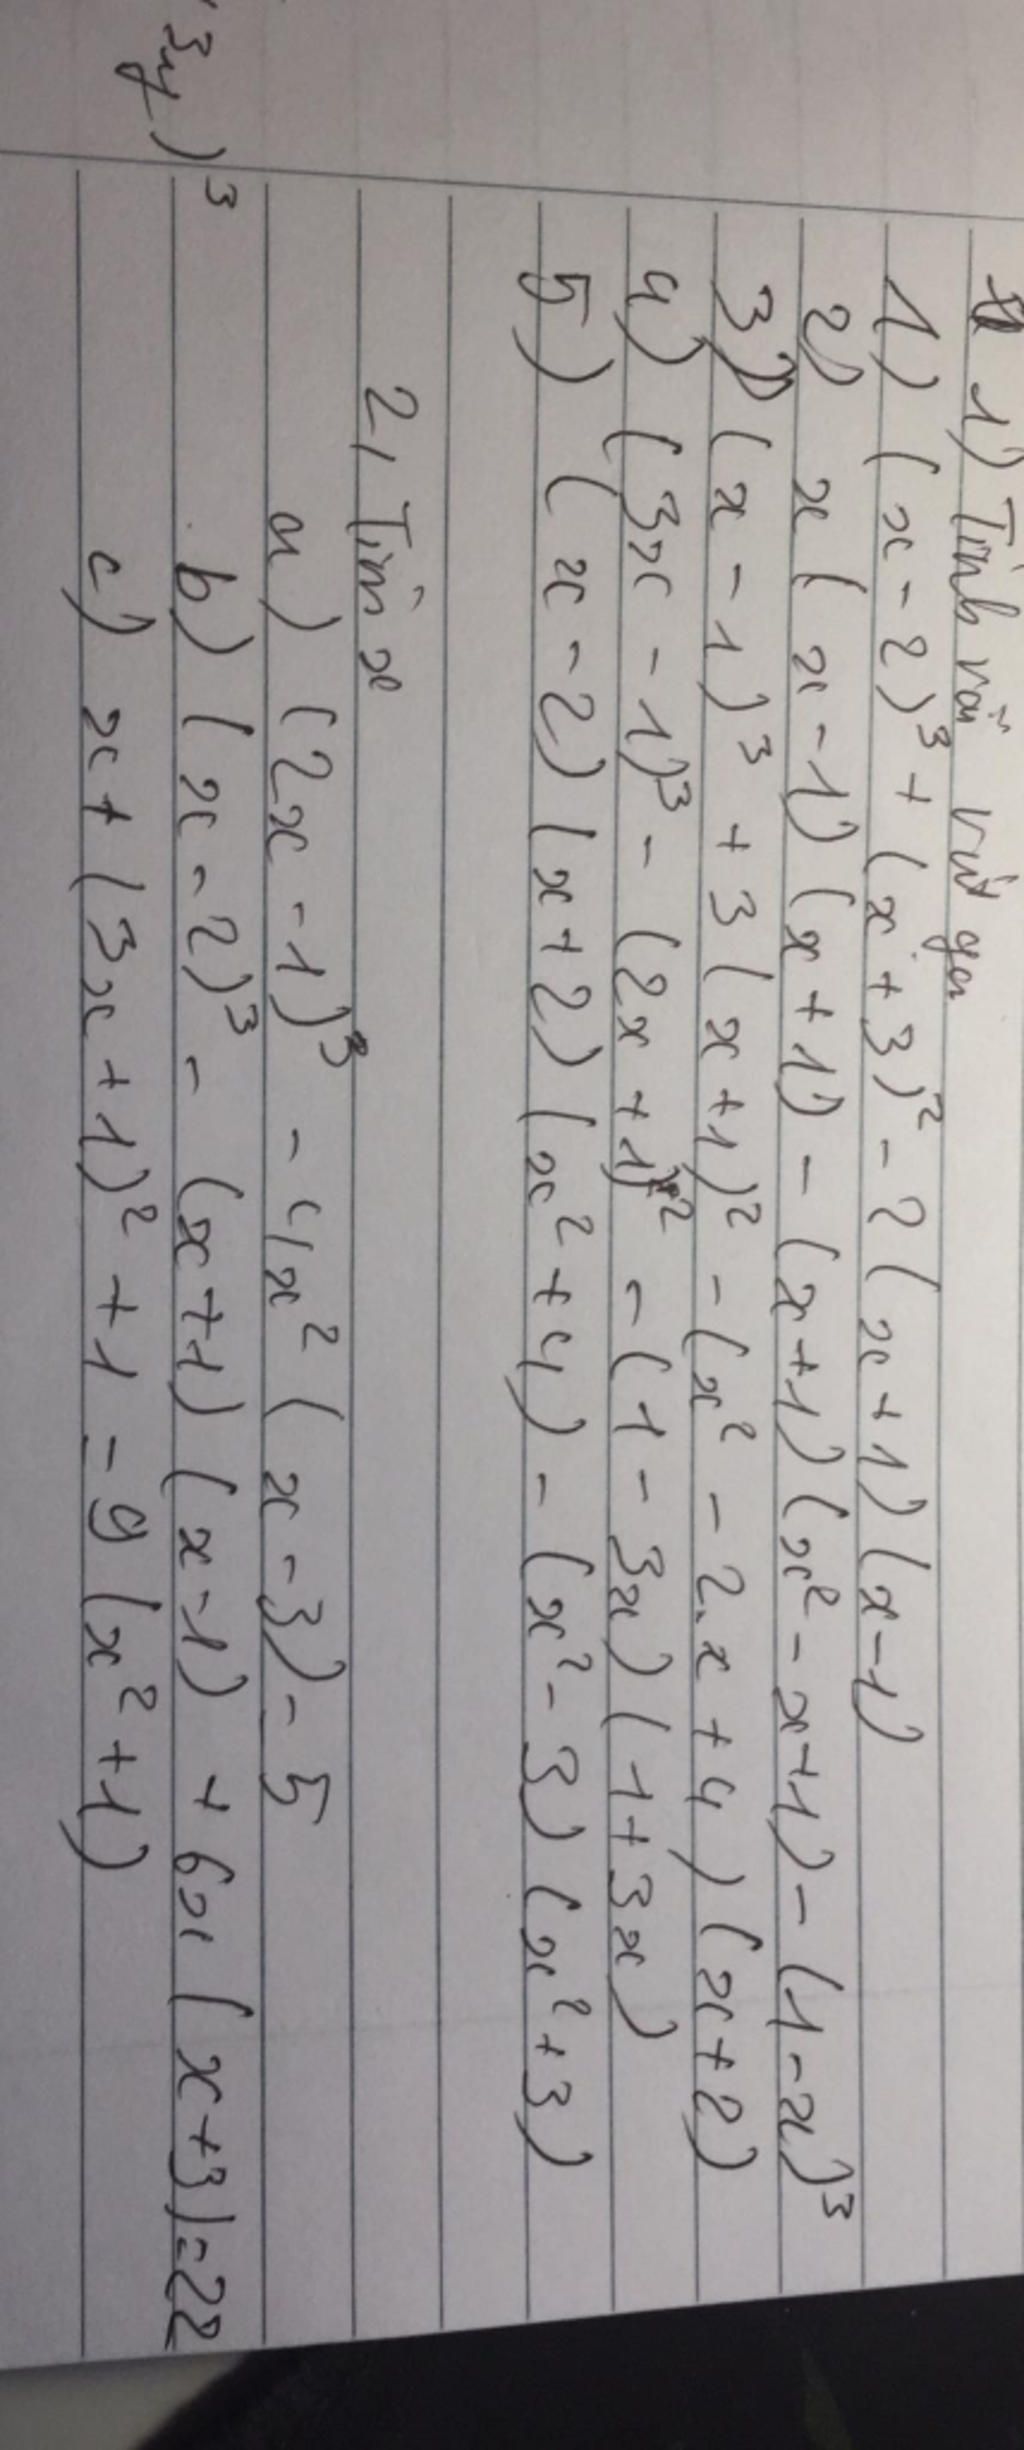 1) Tính và viết gọn
1) (x-2)³ + (x+3)² - 2(x+1)(x-1)
2) x(x-1)(x+1) - (x+1)(x²-x+1) - (1-x)³
3) (x-1)³ + 3(x+1)² - (x² - 2.x + 4)(x+2)
4) (3x-1)³ - (2x+1)² - (1-3x)(1+3x)
5) (x-2)(x+2)(x²+4) - (x²-3)(x²+3)
2, Tìm x
a) (2x-1)³ - 4x²(x-3) - 5
b) (x-2)³ - (x+1)(x-1) + 6x(x+3)=22
c) x+(3x+1)² + 1 = 9(x²+1)
3y)³